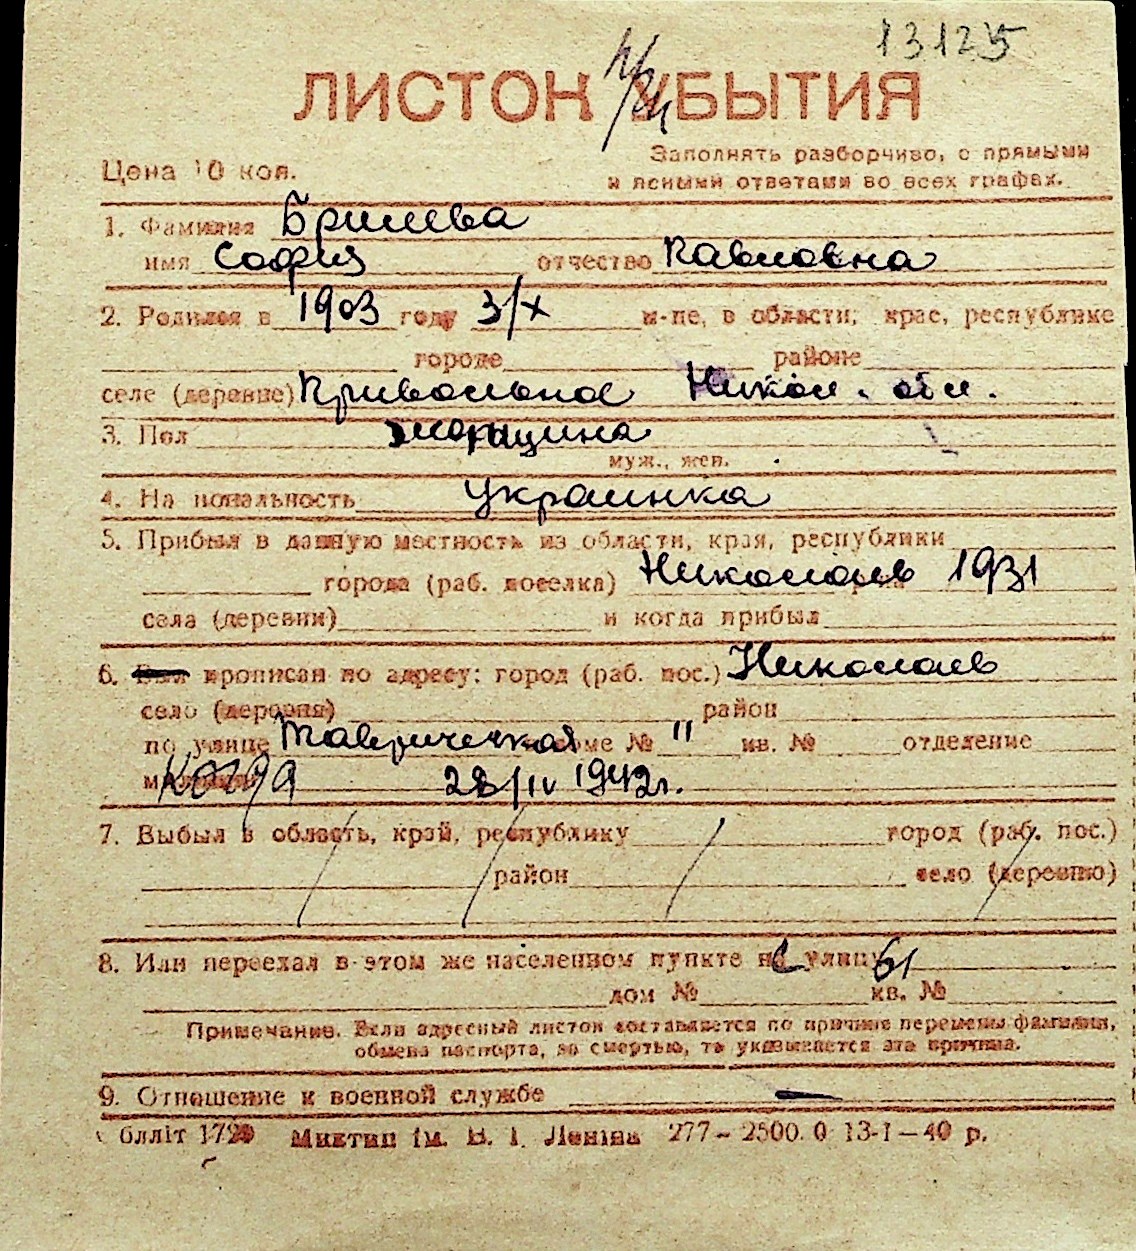 13125
ЛИСТОК УБЫТИЯ
Цена 10 коп.
Заполнять разборчиво, с прямыми
и ясными ответами во всех графах.
1. Фамилия Бришева
имя София отчество Павловна
2. Родился в 1903 году 3/X м-це, в области, крае, республике
городе районе
селе (деревне) Привольное Никол. обл.
3. Пол женщина
муж., жен.
4. Национальность Украинка
5. Прибыл в данную местность из области, края, республики
города (раб. поселка) Николаев 1931
села (деревни) и когда прибыл
6. Был прописан по адресу: город (раб. пос.) Николаев
село (деревня) район
по улице Таврическая доме № 11 кв. № отделение
милиции Когда 28/IV 1942г.
7. Выбыл в область, край, республику город (раб. пос.)
район село (деревню)
8. Или переехал в этом же населенном пункте на улицу 61
дом № кв. №
Примечание. Если адресный листок составляется по причине перемены фамилии,
обмена паспорта, за смертью, то указывается эта причина.
9. Отношение к военной службе —
блліт Миктип ім. В. І. Леніна 277—2500.0 13-1—40 р.